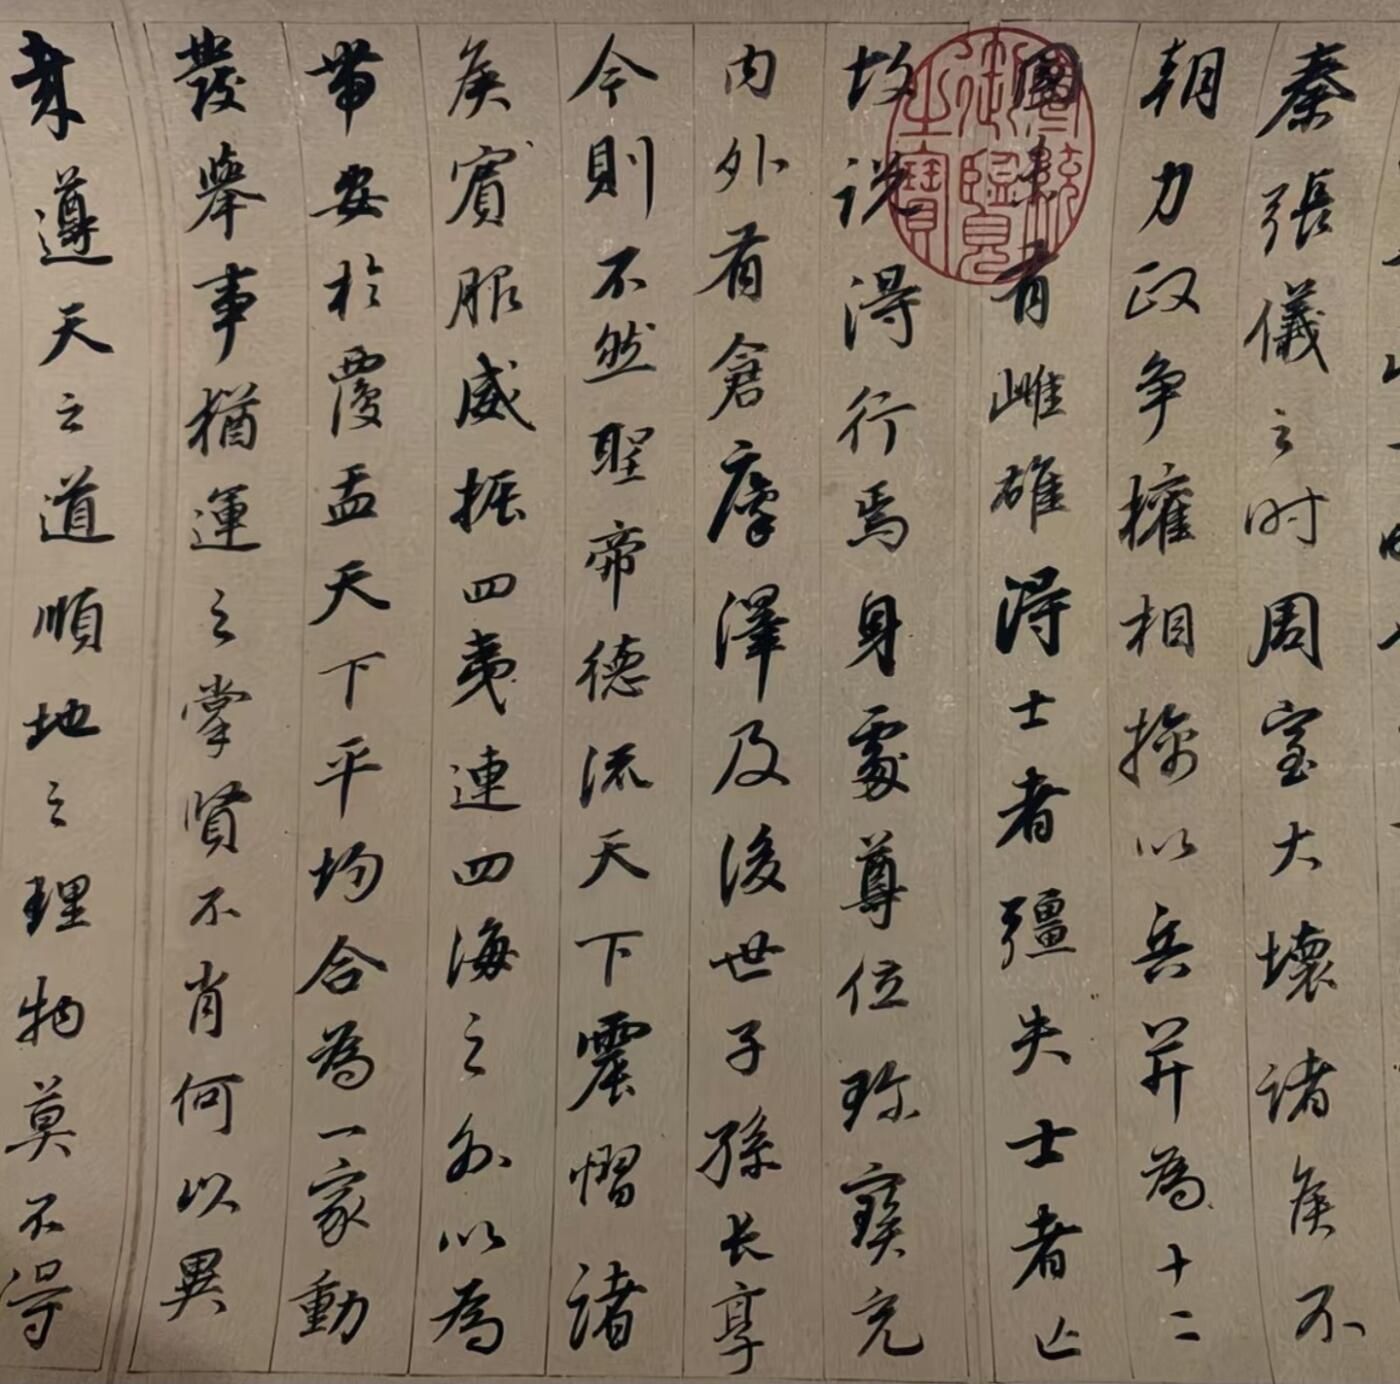 秦張儀之时周室大壞諸侯不
朝力政争擁相擒以兵并為十二
國未有雌雄得士者彊失士者亡
故説得行焉身處尊位珎寳充
内外有倉廩澤及後世子孫长享
今則不然聖帝德流天下震慴諸
侯賓服威振四夷連四海之外以為
帶安於覆盂天下平均合為一家動
發舉事猶運之掌賢不肖何以異
哉遵天之道順地之理物莫不得
宣統御覽之寶